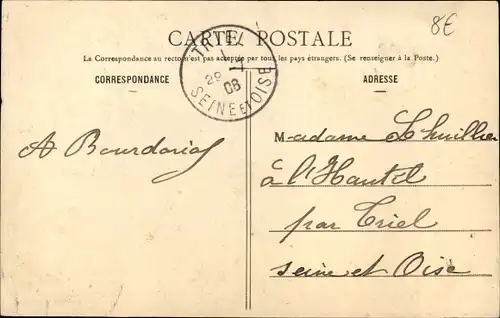 8€
CARTE POSTALE
La Correspondance au recto n'est pas acceptée par tous les pays étrangers. (Se renseigner à la Poste.)
CORRESPONDANCE
ADRESSE
TRIEL
29
08
SEINE ET OISE
A Bourdarias
Madame Lhuillier
à l'Hautil
par Triel
Seine et Oise